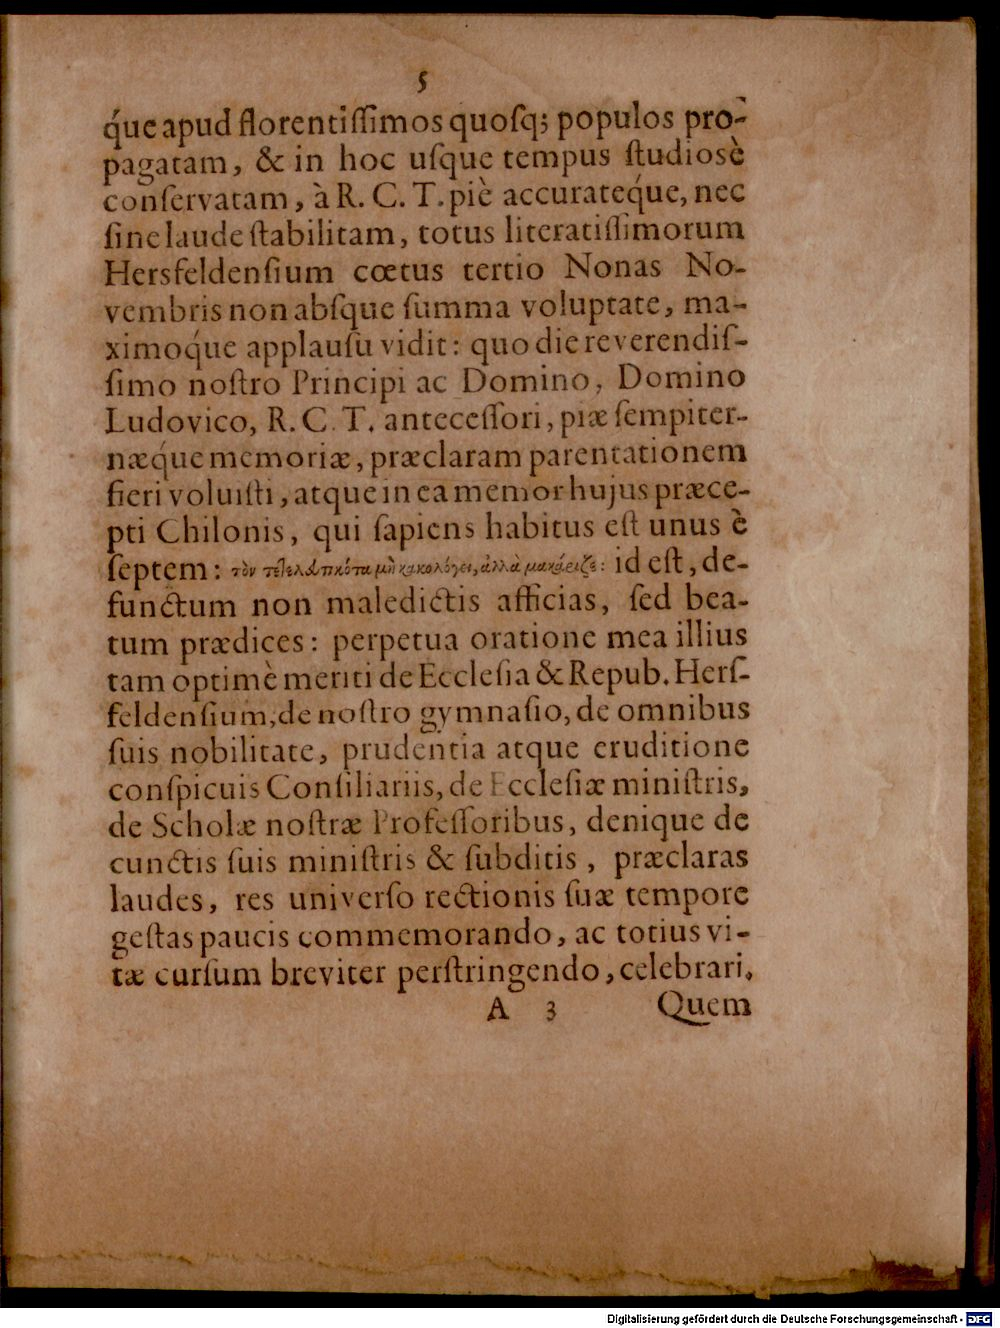 5
q́ue apud florentiſſimos quoſq; populos pro-
pagatam, & in hoc uſque tempus ſtudiosè
conſervatam, à R. C. T. piè accurateq́ue, nec
ſine laude ſtabilitam, totus literatiſſimorum
Hersfeldenſium cœtus tertio Nonas No-
vembris non abſque ſumma voluptate, ma-
ximoq́ue applauſu vidit: quo die reverendiſ-
ſimo noſtro Principi ac Domino, Domino
Ludovico, R. C. T. anteceſſori, piæ ſempiter-
næq́ue memoriæ, præclaram parentationem
fieri voluiſti, atque in ea memor hujus præce-
pti Chilonis, qui ſapiens habitus eſt unus è
ſeptem: τὸν μὴ κακολόγει, ἀλλὰ μακάριζε: id eſt, de-
functum non maledictis afficias, ſed bea-
tum prædices: perpetua oratione mea illius
tam optimè meriti de Eccleſia & Repub. Herſ-
feldenſium, de noſtro gymnaſio, de omnibus
ſuis nobilitate, prudentia atque eruditione
conſpicuis Conſiliariis, de Eccleſiæ miniſtris,
de Scholæ noſtræ Profeſſoribus, denique de
cunctis ſuis miniſtris & ſubditis, præclaras
laudes, res univerſo rectionis ſuæ tempore
geſtas paucis commemorando, ac totius vi-
tæ curſum breviter perſtringendo, celebrari.
A 3 Quem
Digitalisierung gefördert durch die Deutsche Forschungsgemeinschaft - DFG